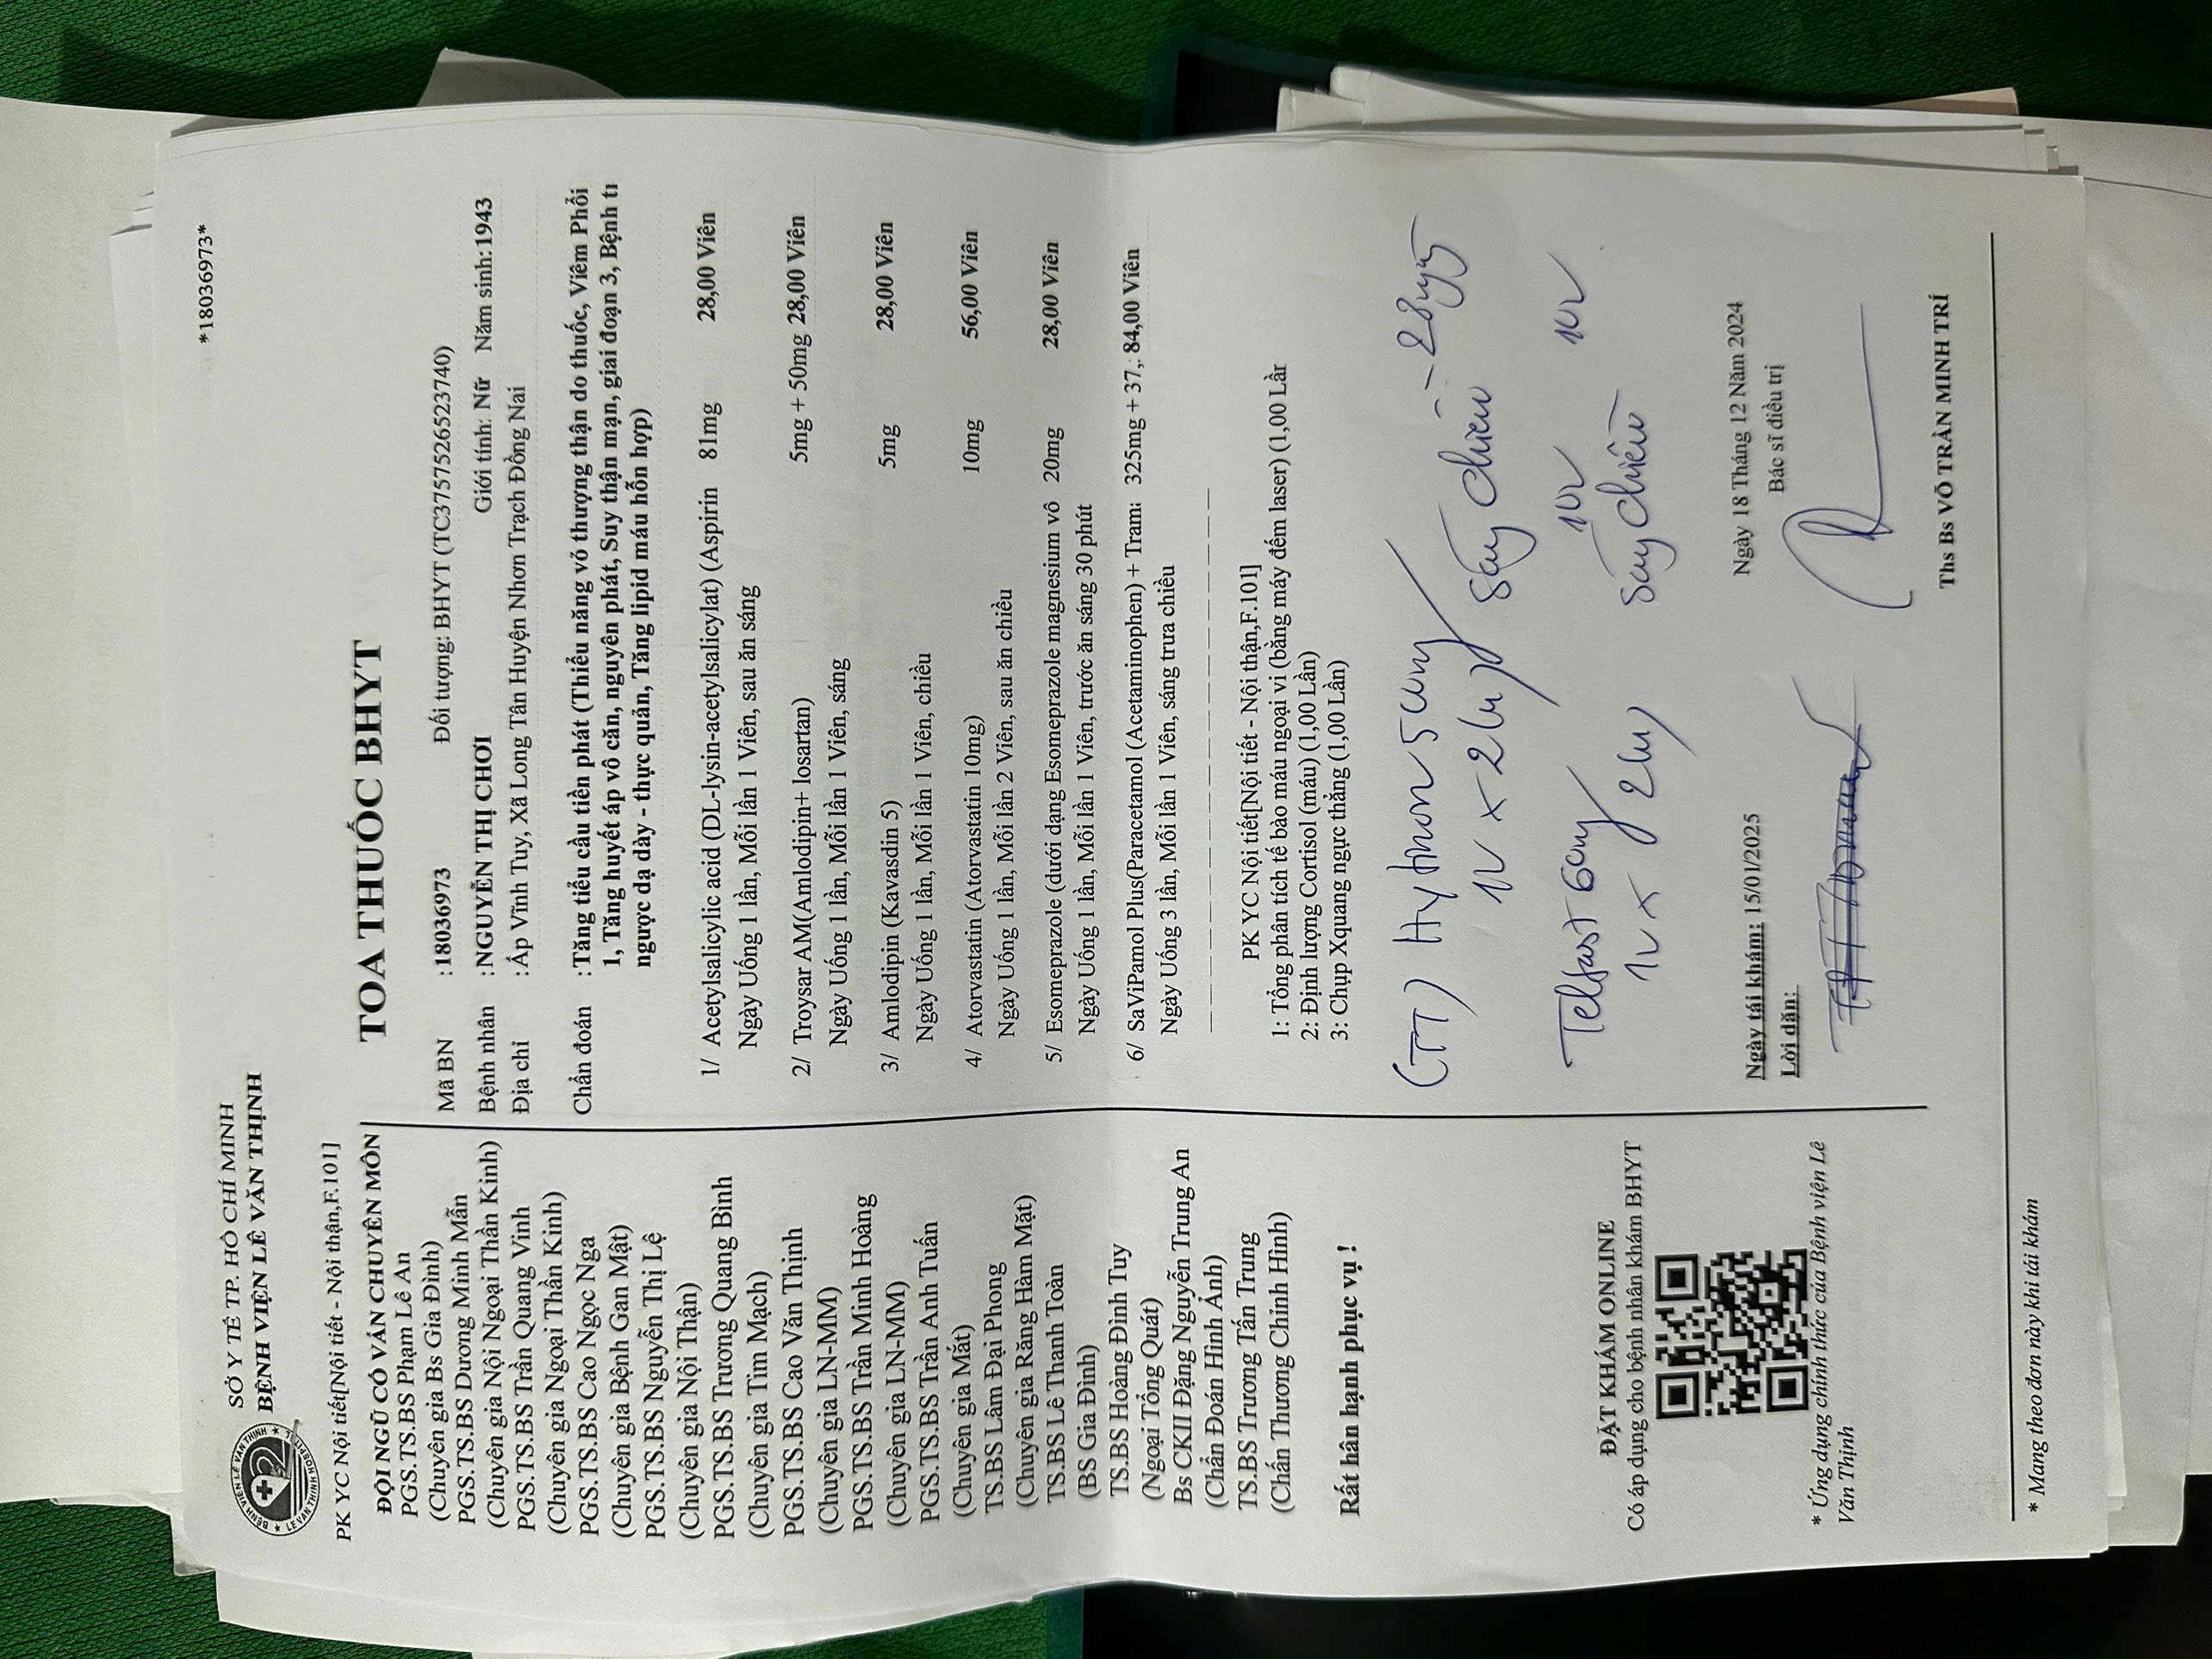 *18036973*
SỞ Y TẾ TP. HỒ CHÍ MINH
BỆNH VIỆN LÊ VĂN THỊNH
PK YC Nội tiết[Nội tiết - Nội thận,F.101]
ĐỘI NGŨ CỐ VẤN CHUYÊN MÔN
PGS.TS.BS Phạm Lê An
(Chuyên gia Bs Gia Đình)
PGS.TS.BS Dương Minh Mẫn
(Chuyên gia Nội Ngoại Thần Kinh)
PGS.TS.BS Trần Quang Vinh
(Chuyên gia Ngoại Thần Kinh)
PGS.TS.BS Cao Ngọc Nga
(Chuyên gia Bệnh Gan Mật)
PGS.TS.BS Nguyễn Thị Lệ
(Chuyên gia Nội Thận)
PGS.TS.BS Trương Quang Bình
(Chuyên gia Tim Mạch)
PGS.TS.BS Cao Văn Thịnh
(Chuyên gia LN-MM)
PGS.TS.BS Trần Minh Hoàng
(Chuyên gia LN-MM)
PGS.TS.BS Trần Anh Tuấn
(Chuyên gia Mắt)
TS.BS Lâm Đại Phong
(Chuyên gia Răng Hàm Mặt)
TS.BS Lê Thanh Toàn
(BS Gia Đình)
TS.BS Hoàng Đình Tuy
(Ngoại Tổng Quát)
Bs CKII Đặng Nguyễn Trung An
(Chẩn Đoán Hình Ảnh)
TS.BS Trương Tấn Trung
(Chấn Thương Chỉnh Hình)
Rất hân hạnh phục vụ !
ĐẶT KHÁM ONLINE
Có áp dụng cho bệnh nhân khám BHYT
* Ứng dụng chính thức của Bệnh viện Lê
Văn Thịnh
TOA THUỐC BHYT
Mã BN :18036973 Đối tượng: BHYT (TC3757526523740)
Bệnh nhân :NGUYỄN THỊ CHƠI Giới tính: Nữ Năm sinh:1943
Địa chỉ :Ấp Vĩnh Tuy, Xã Long Tân Huyện Nhơn Trạch Đồng Nai
Chẩn đoán :Tăng tiểu cầu tiền phát (Thiểu năng vỏ thượng thận do thuốc, Viêm Phổi
1, Tăng huyết áp vô căn, nguyên phát, Suy thận mạn, giai đoạn 3, Bệnh tr
ngược dạ dày - thực quản, Tăng lipid máu hỗn hợp)
1/ Acetylsalicylic acid (DL-lysin-acetylsalicylat) (Aspirin 81mg 28,00 Viên
Ngày Uống 1 lần, Mỗi lần 1 Viên, sau ăn sáng
2/ Troysar AM(Amlodipin+ losartan) 5mg + 50mg 28,00 Viên
Ngày Uống 1 lần, Mỗi lần 1 Viên, sáng
3/ Amlodipin (Kavasdin 5) 5mg 28,00 Viên
Ngày Uống 1 lần, Mỗi lần 1 Viên, chiều
4/ Atorvastatin (Atorvastatin 10mg) 10mg 56,00 Viên
Ngày Uống 1 lần, Mỗi lần 2 Viên, sau ăn chiều
5/ Esomeprazole (dưới dạng Esomeprazole magnesium vô 20mg 28,00 Viên
Ngày Uống 1 lần, Mỗi lần 1 Viên, trước ăn sáng 30 phút
6/ SaViPamol Plus(Paracetamol (Acetaminophen) + Tram: 325mg + 37,: 84,00 Viên
Ngày Uống 3 lần, Mỗi lần 1 Viên, sáng trưa chiều
PK YC Nội tiết[Nội tiết - Nội thận,F.101]
1: Tổng phân tích tế bào máu ngoại vi (bằng máy đếm laser) (1,00 Lần
2: Định lượng Cortisol (máu) (1,00 Lần)
3: Chụp Xquang ngực thẳng (1,00 Lần)
(TT) Hytinon 500mg
1V x 2 lần sáng chiều - 28 ngày
Telfast 60mg 10V 10V
1V x 2 lần sáng chiều
Ngày tái khám: 15/01/2025 Ngày 18 Tháng 12 Năm 2024
Lời dặn: Bác sĩ điều trị
Ths Bs VÕ TRẦN MINH TRÍ
* Mang theo đơn này khi tái khám